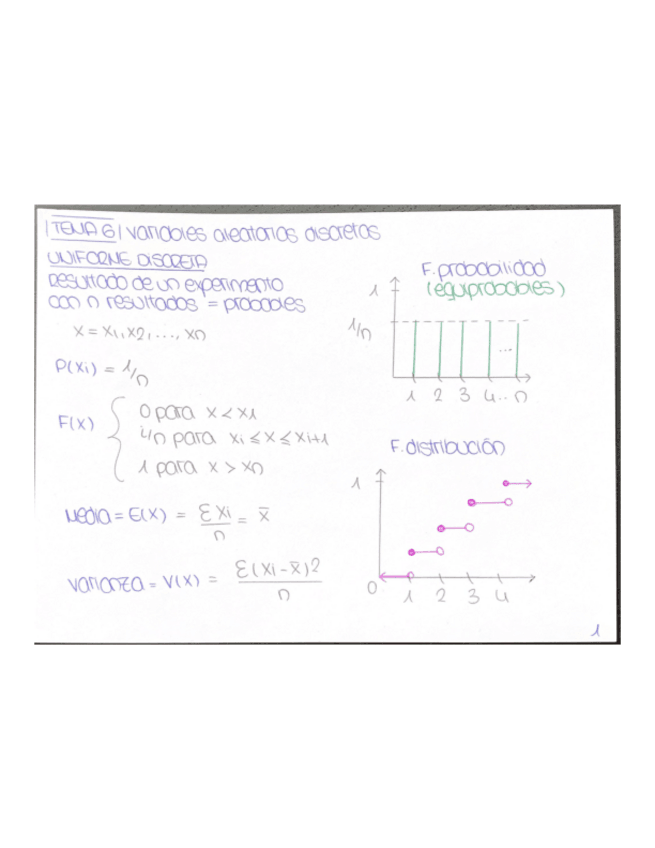 TEMA 6 variables aleatorias discretas
UNIFORME DISCRETA
Resultado de un experimento
con n resultados = probables
x = x1, x2, ..., xn
P(xi) = 1/n
F(x) { 0 para x < x1
i/n para xi ≤ x ≤ xi+1
1 para x > xn
Media = E(x) = Σxi/n = x̄
Varianza = V(x) = Σ(xi - x̄)2/n
F. probabilidad
(equiprobables)
1
1/n
...
1 2 3 4 .. n
F. distribución
1
0 1 2 3 4
1